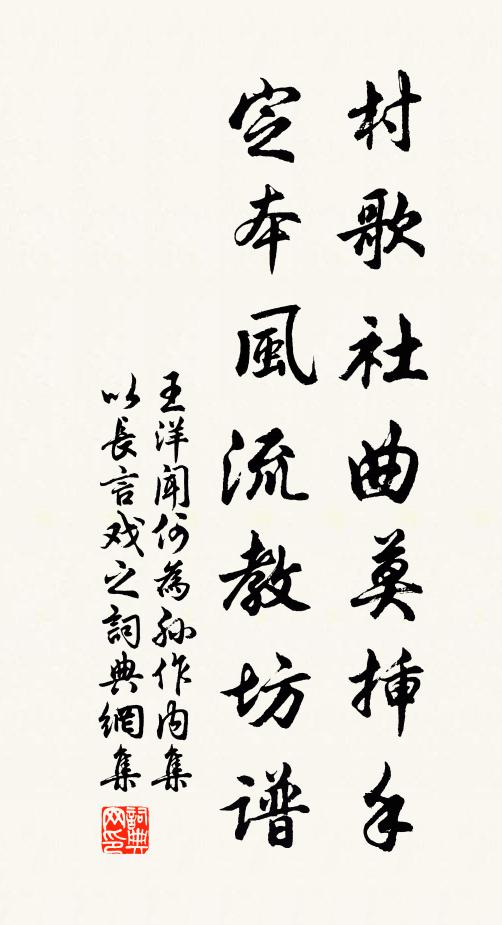 村歌社曲莫插手
定本風流教坊谱
王洋聞何為孙作内集
以長言戏之詞典網集
詞典网印